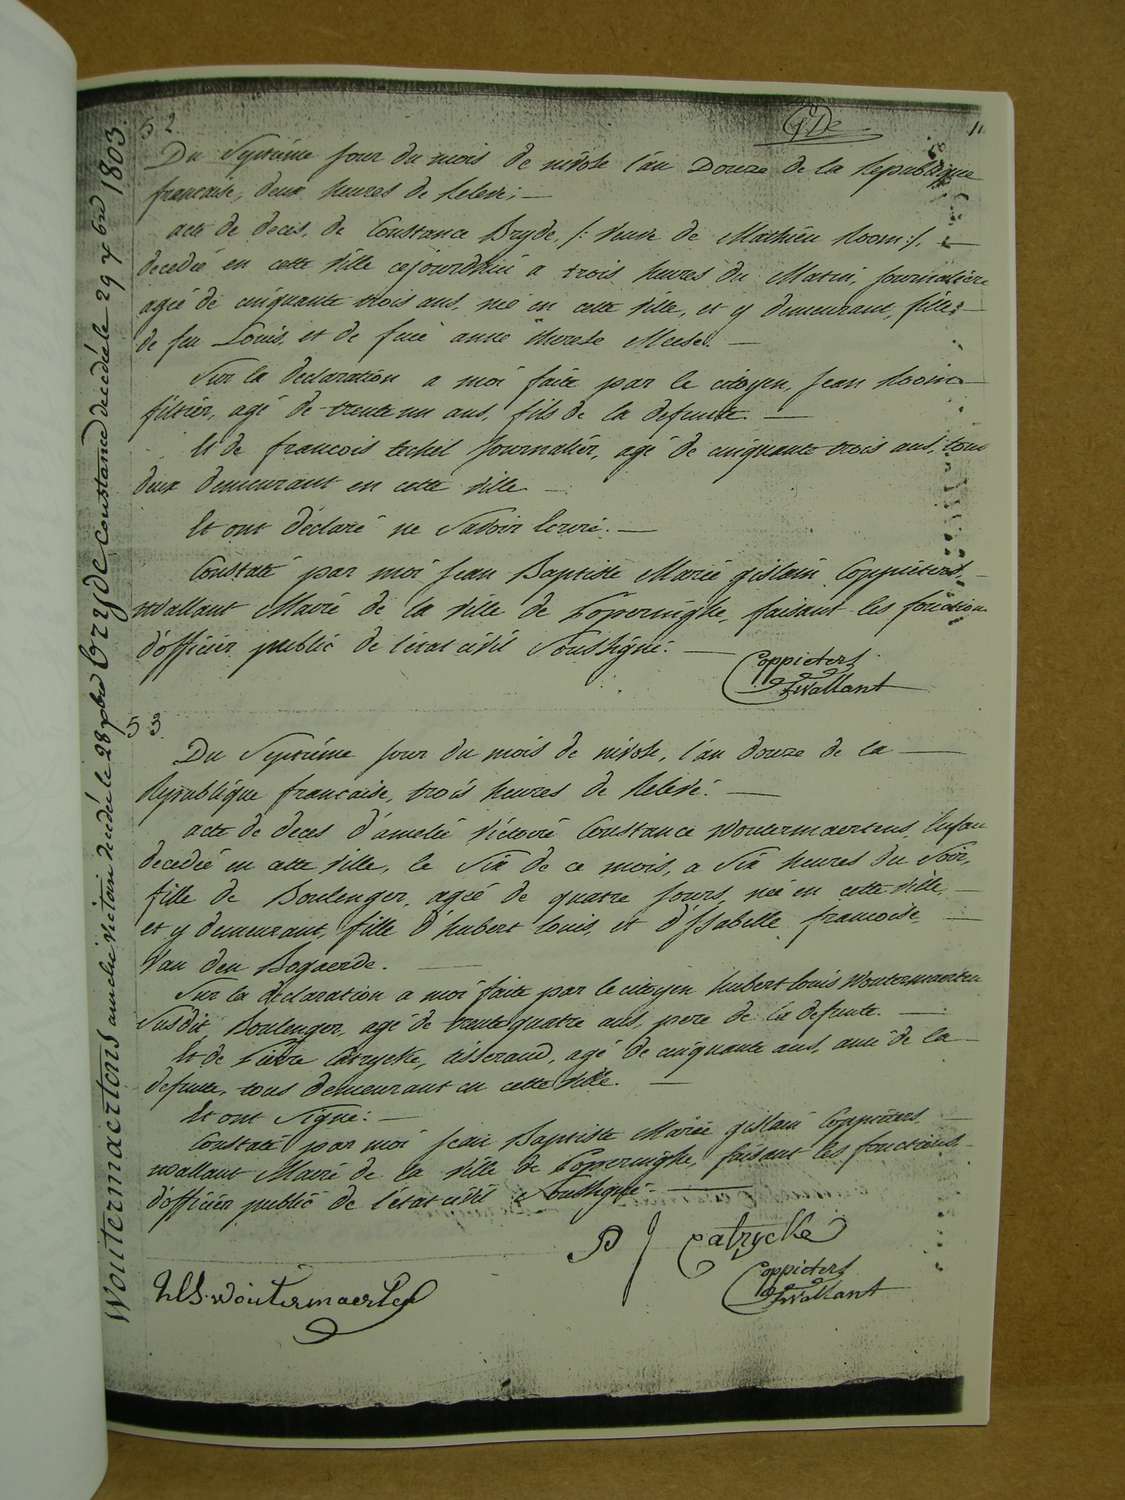 52
Du Septième jour du mois de nivose l'an Douze de la Republique
française, deux heures de Relevé; —
acte de deces, de Constance Bryde, /: Veuve de Mathieu Room :/, —
decedée en cette Ville cejourdhui a trois heures du Matin, Journalière
agée de cinquante trois ans, née en cette Ville, et y demeurant, fille —
de feu Louis, et de feue anne therese Meese. —
Sur la declaration a moi faite par le citoyen, Jean Room —
filtier, agé de trente un ans, fils de la defunte. —
Et de francois techel Journalier, agé de cinquante trois ans, tous
deux demeurant en cette Ville —
Et ont déclaré ne Savoir Ecrire. —
Constaté par moi Jean Baptiste Marie gislain Coppieters —
wallant Maire de la Ville de Poperinghe, faisant les fonctions
d'officier public de l'état civil Soussigné. —
Coppieters
wallant
53
Du Septième jour du mois de nivose, l'an douze de la —
Republique française, trois heures de Relevé. —
acte de deces d'amelie Victoire Constance Woutermaertens, Enfan
decedée en cette Ville, le Six de ce mois, a Six heures du Soir,
fille de Boulenger, agée de quatre Jours, née en cette Ville, —
et y demeurant, fille d'hubert Louis, et d'Isabelle francoise —
Van den Bogaerde. —
Sur la declaration a moi faite par le citoyen hubert Louis Woutermaerten
Susdit Boulenger, agé de trente quatre ans, pere de la defunte. —
Et de Pierre Catrycke, tisserand, agé de cinquante ans, ami de la —
defunte, tous demeurant en cette Ville. —
Et ont Signé: —
Constaté par moi Jean Baptiste Marie gislain Coppieters —
wallant Maire de la Ville de Poperinghe, faisant les fonctions
d'officier public de l'état civil Soussigné. —
P J Catrycke
Coppieters
wallant
Woutermaertens amelie victoire decédé le 28 xbre Bryde Constance decédé le 29 xbre 1803.